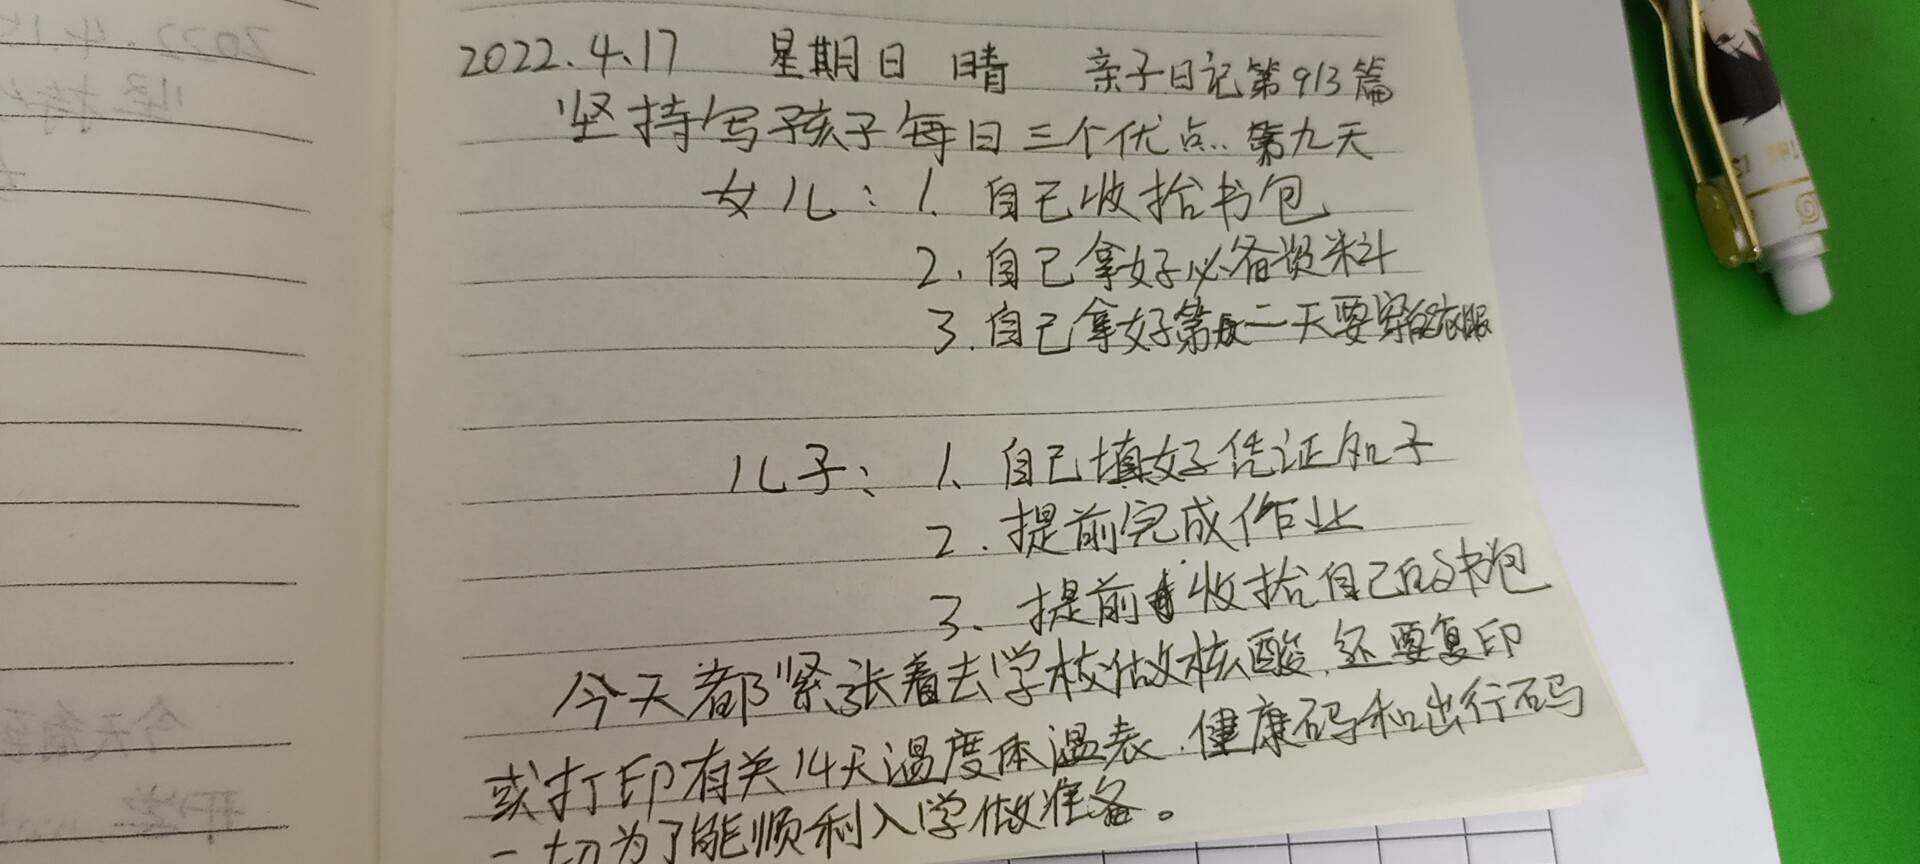 2022.4.17 星期日 晴 亲子日记第913篇
坚持写孩子每日三个优点..第九天
女儿：1、自己收拾书包
2.自己拿好必备资料
3.自己拿好第二天要穿的衣服
儿子：1、自己填好凭证和子
2.提前完成作业
3、提前收拾自己的书包
今天都紧张着去学校做核酸.还要复印
或打印有关14天温度体温表.健康码和出行码
一切为了能顺利入学做准备。